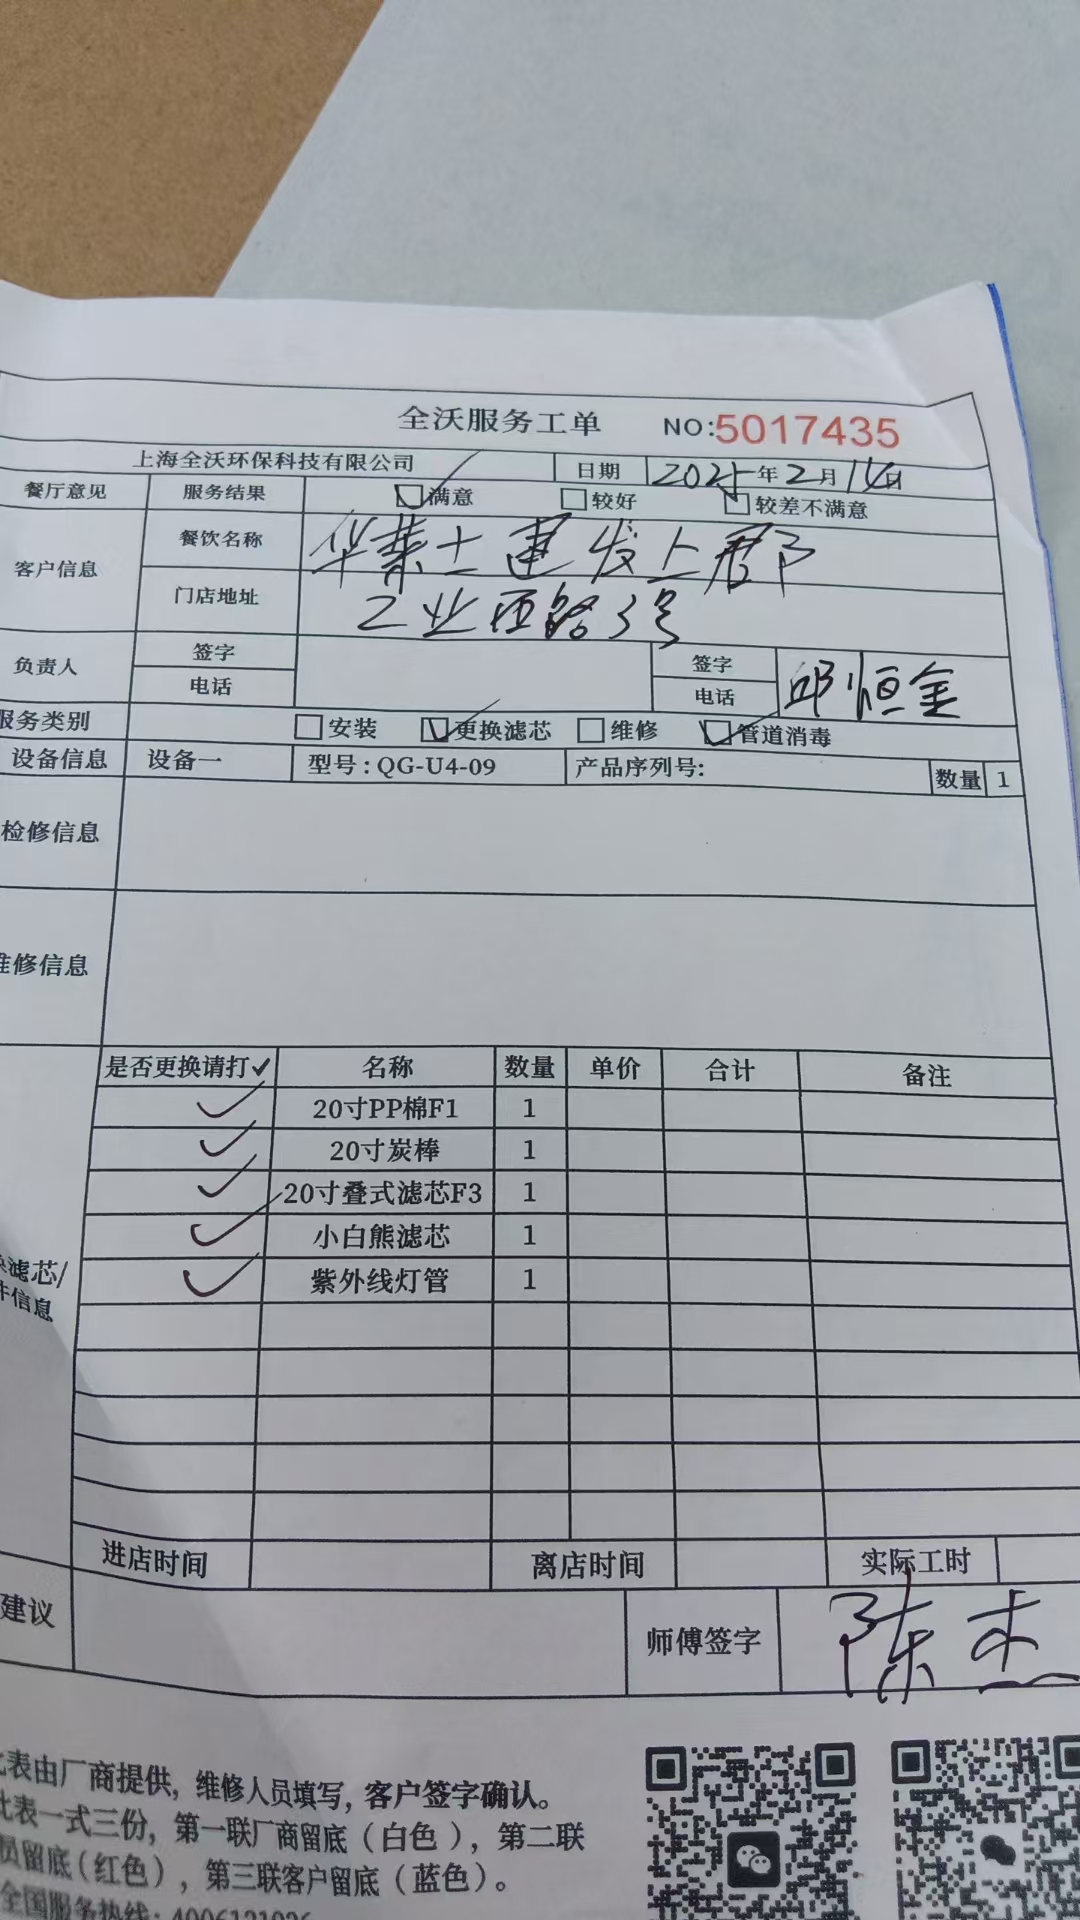 全沃服务工单 NO:5017435
上海全沃环保科技有限公司 日期 2025年2月14日
餐厅意见 服务结果 满意 较好 较差不满意
客户信息 餐饮名称 华莱士建发上郡
门店地址 工业西路3号
负责人 签字 签字 邱恒金
电话 电话
服务类别 安装 更换滤芯 维修 管道消毒
设备信息 设备一 型号:QG-U4-09 产品序列号: 数量 1
检修信息
维修信息
是否更换请打✓ 名称 数量 单价 合计 备注
✓ 20寸PP棉F1 1
✓ 20寸炭棒 1
✓ 20寸叠式滤芯F3 1
✓ 小白熊滤芯 1
✓ 紫外线灯管 1
滤芯/
件信息
进店时间 离店时间 实际工时
建议 师傅签字 陈杰
表由厂商提供，维修人员填写，客户签字确认。
此表一式三份，第一联厂商留底（白色），第二联
员留底（红色），第三联客户留底（蓝色）。
全国服务热线：